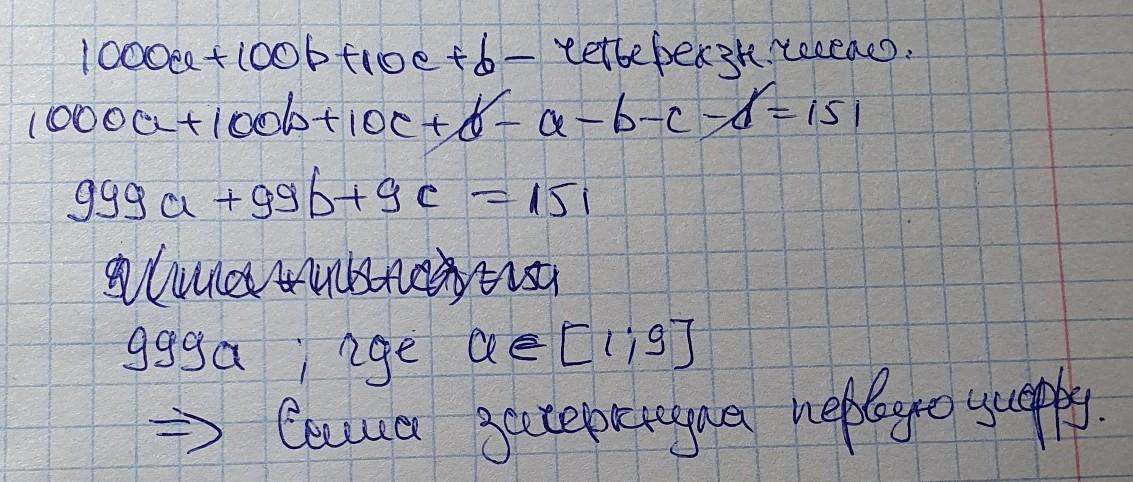 1000a+100b+10c+b – четырехзн. число.
1000a+100b+10c+d – a – b – c – d = 151
999a + 99b + 9c = 151
999a ; где a ∈ [1;9]
⇒ Саша зачеркнула первую цифру.